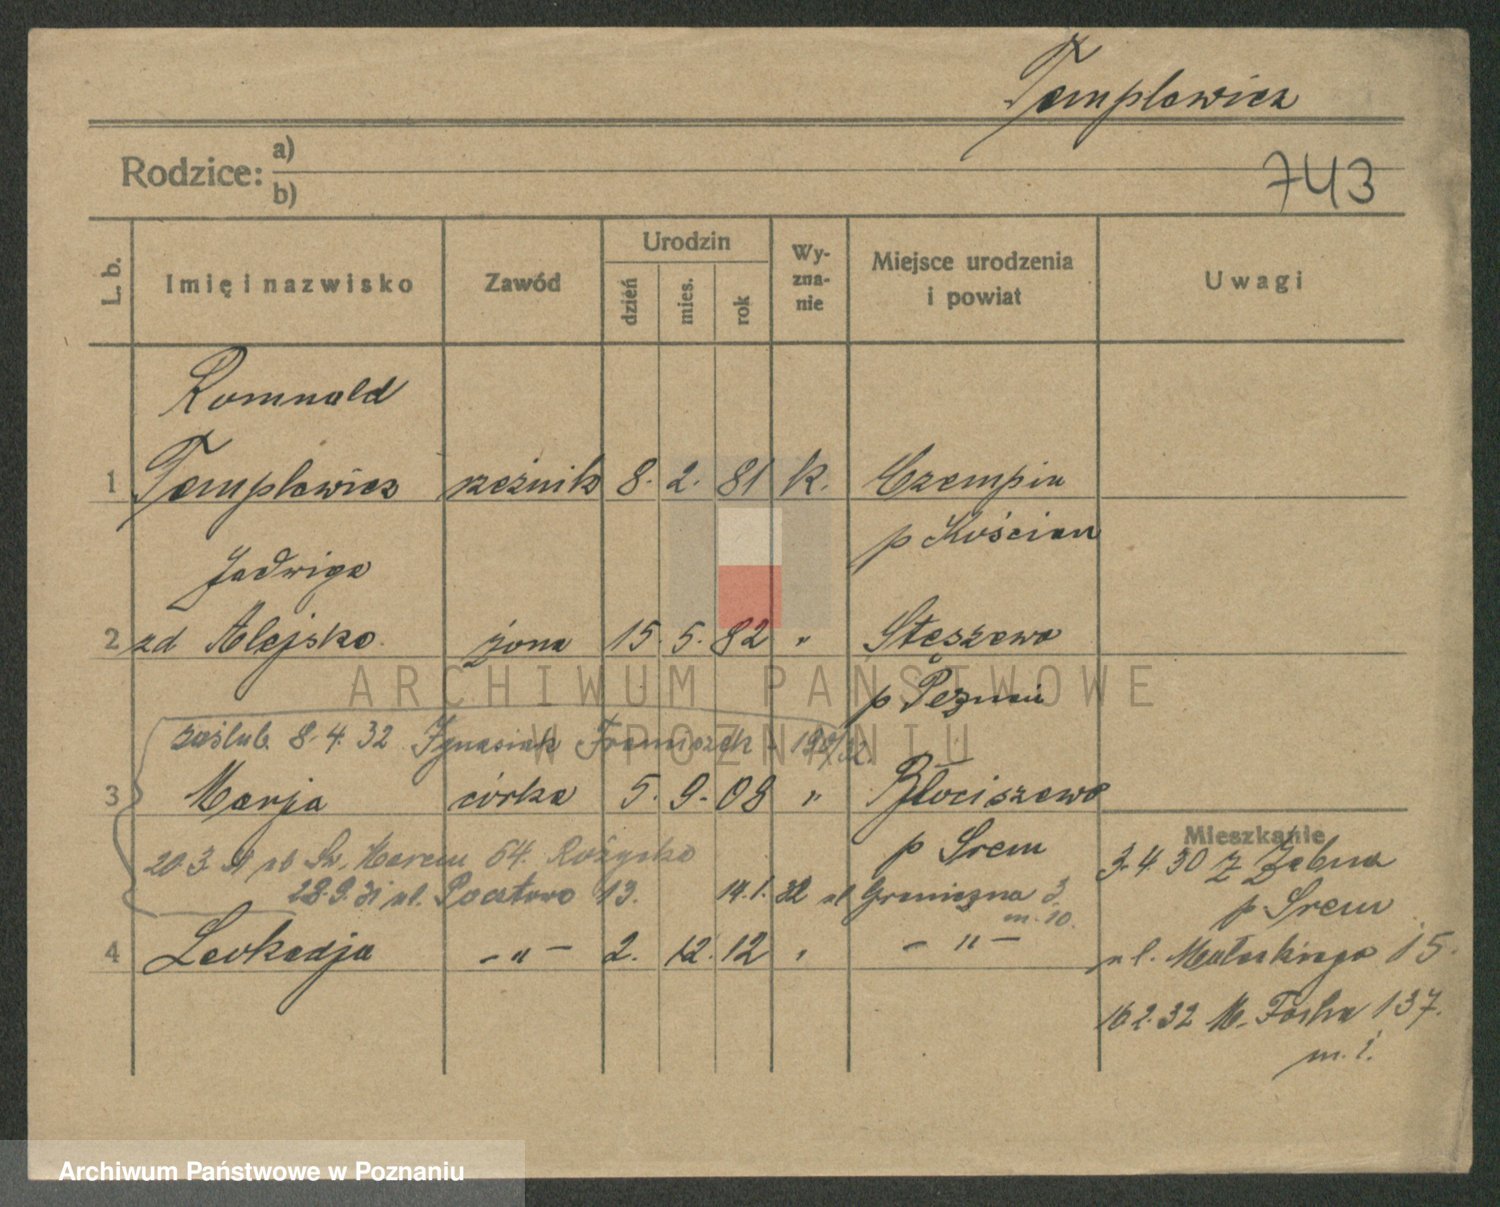 Templewicz
Rodzice: a)
b)
743
L. b.
Imię i nazwisko
Zawód
Urodzin
dzień
mies.
rok
Wy-
zna-
nie
Miejsce urodzenia
i powiat
Uwagi
Romuald
1 Templewicz rzeźnik 8. 2. 81 k. Czempin
p Kościan
Jadwiga
2 zd Alejska żona 15. 5. 82 " Stęszewo
p Poznań
zaślub. 8.4.32 Ignasiak Franciszek
3 Marja córka 5. 9. 08 " Błociszewo
p Śrem
Mieszkanie
3.4 30 z Żabna
p Śrem
20.3.31 ul Św. Marcin 64. Różycka
28.9.31 ul. Pocztowa 13. 14.1.32 ul Graniczna 3
m. 10.
4 Leokadja - " - 2. 12. 12 " - " -
ul. Małeckiego 15.
16.2.32 M. Focha 137.
m. 1.
ARCHIWUM PAŃSTWOWE
W POZNANIU
Archiwum Państwowe w Poznaniu